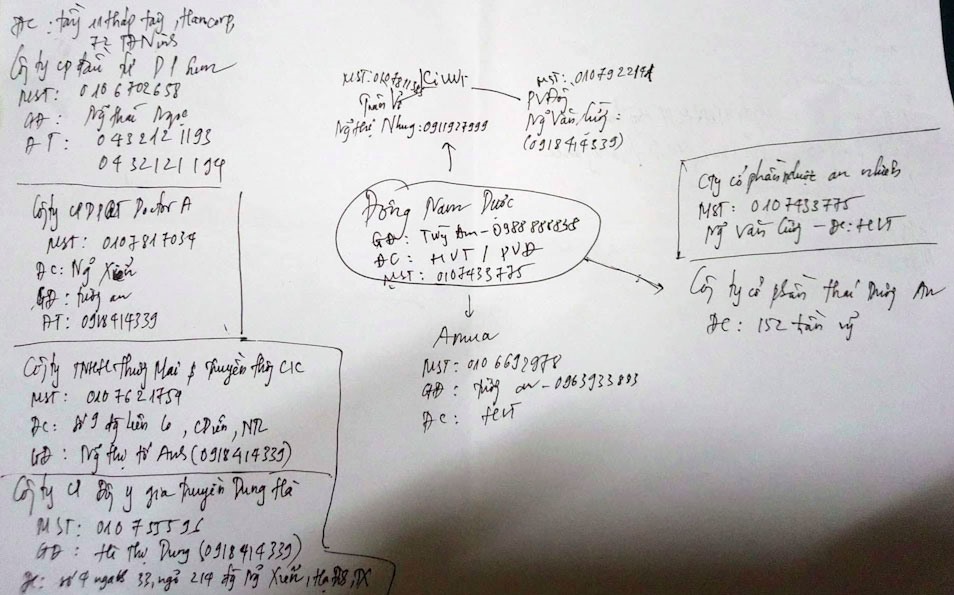 ĐC: tầng 11 tháp tây, Hancorp,
72 TĐNinh
Công ty cp
MST: 0106702658
GĐ: Ng Thái Ngọc
ĐT: 0432121193
0432121194
Công ty CP Doctor A
MST: 0107817034
ĐC: Ng Xiển
GĐ: tường an
ĐT: 0918414339
Công ty TNHH Thương Mại & truyền thông CIC
MST: 0107621759
ĐC: số 9 liên cơ, CDiễn, NTL
GĐ: Ng thị tố Anh (0918414339)
Công ty CP đông y gia truyền Dung Hà
MST: 010755596
GĐ: Hà Thị Dung (0918414339)
ĐC: số 4 ngách 33, ngõ 214 đg Ng Xiển, TX
MST:
Trần Vỹ
Ng thị Nhung: 0911927999
MST:
PVĐồng
Ng Văn Cường:
(0918414339)
Đông Nam Dược
GĐ: - 0988888838
ĐC: HVT / PVĐ
MST: 0107433775
Amua
MST: 0106692978
GĐ: tường an - 0963933883
ĐC: HVT
Cty cổ phần dược an nhiên
MST: 0107433775
Ng Văn Cường - ĐC: HVT
Công ty cổ phần thái Dương An
ĐC: 152 trần vỹ